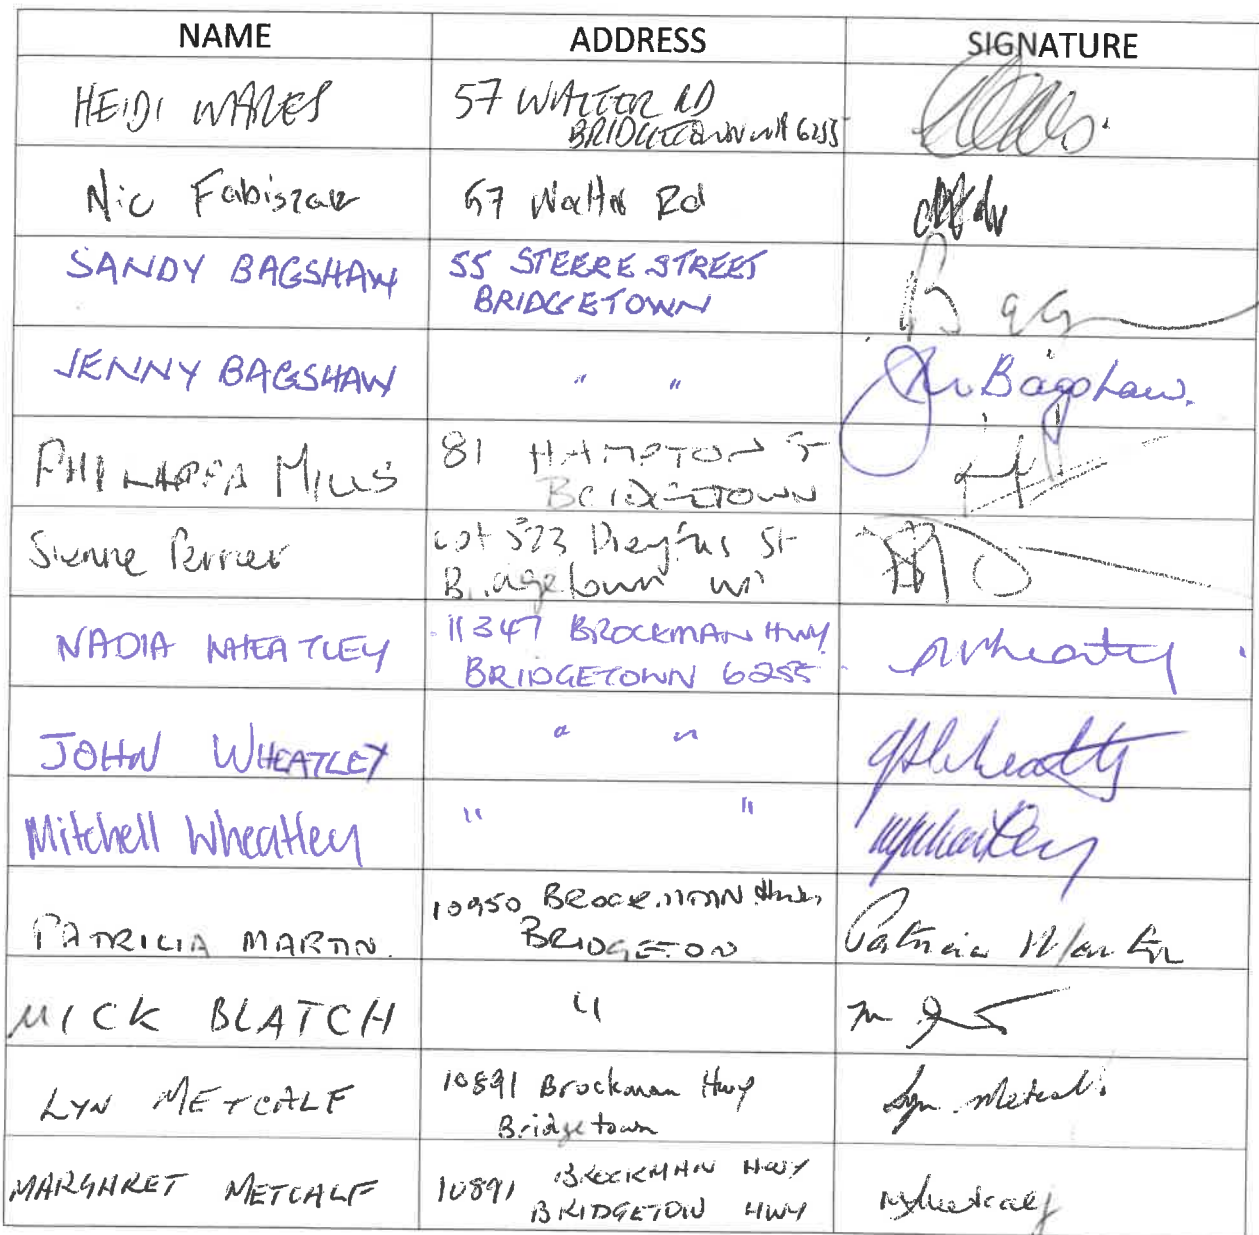 NAME ADDRESS SIGNATURE
HEIDI WARES 57 WALTER RD
BRIDGETOWN WA 6255
Nic Fabiszak 57 Walter Rd
SANDY BAGSHAW 55 STEERE STREET
BRIDGETOWN
JENNY BAGSHAW " " Bagshaw.
PHILLAPPA MILLS 81 HAMPTON ST
BRIDGETOWN
Sienne Perrier Lot 523 Dreyfus St
Bridgetown WA
NADIA WHEATLEY 11347 BROCKMAN HWY
BRIDGETOWN 6255
JOHN WHEATLEY " "
Mitchell Wheatley " "
PATRICIA MARTIN. 10950 BROCKMAN Hwy,
BRIDGETON Patricia Martin
MICK BLATCH "
LYN METCALF 10891 Brockman Hwy Lyn Metcalf
Bridgetown
MARGHRET METCALF 10891 BROCKMAN HWY
BRIDGETON HWY